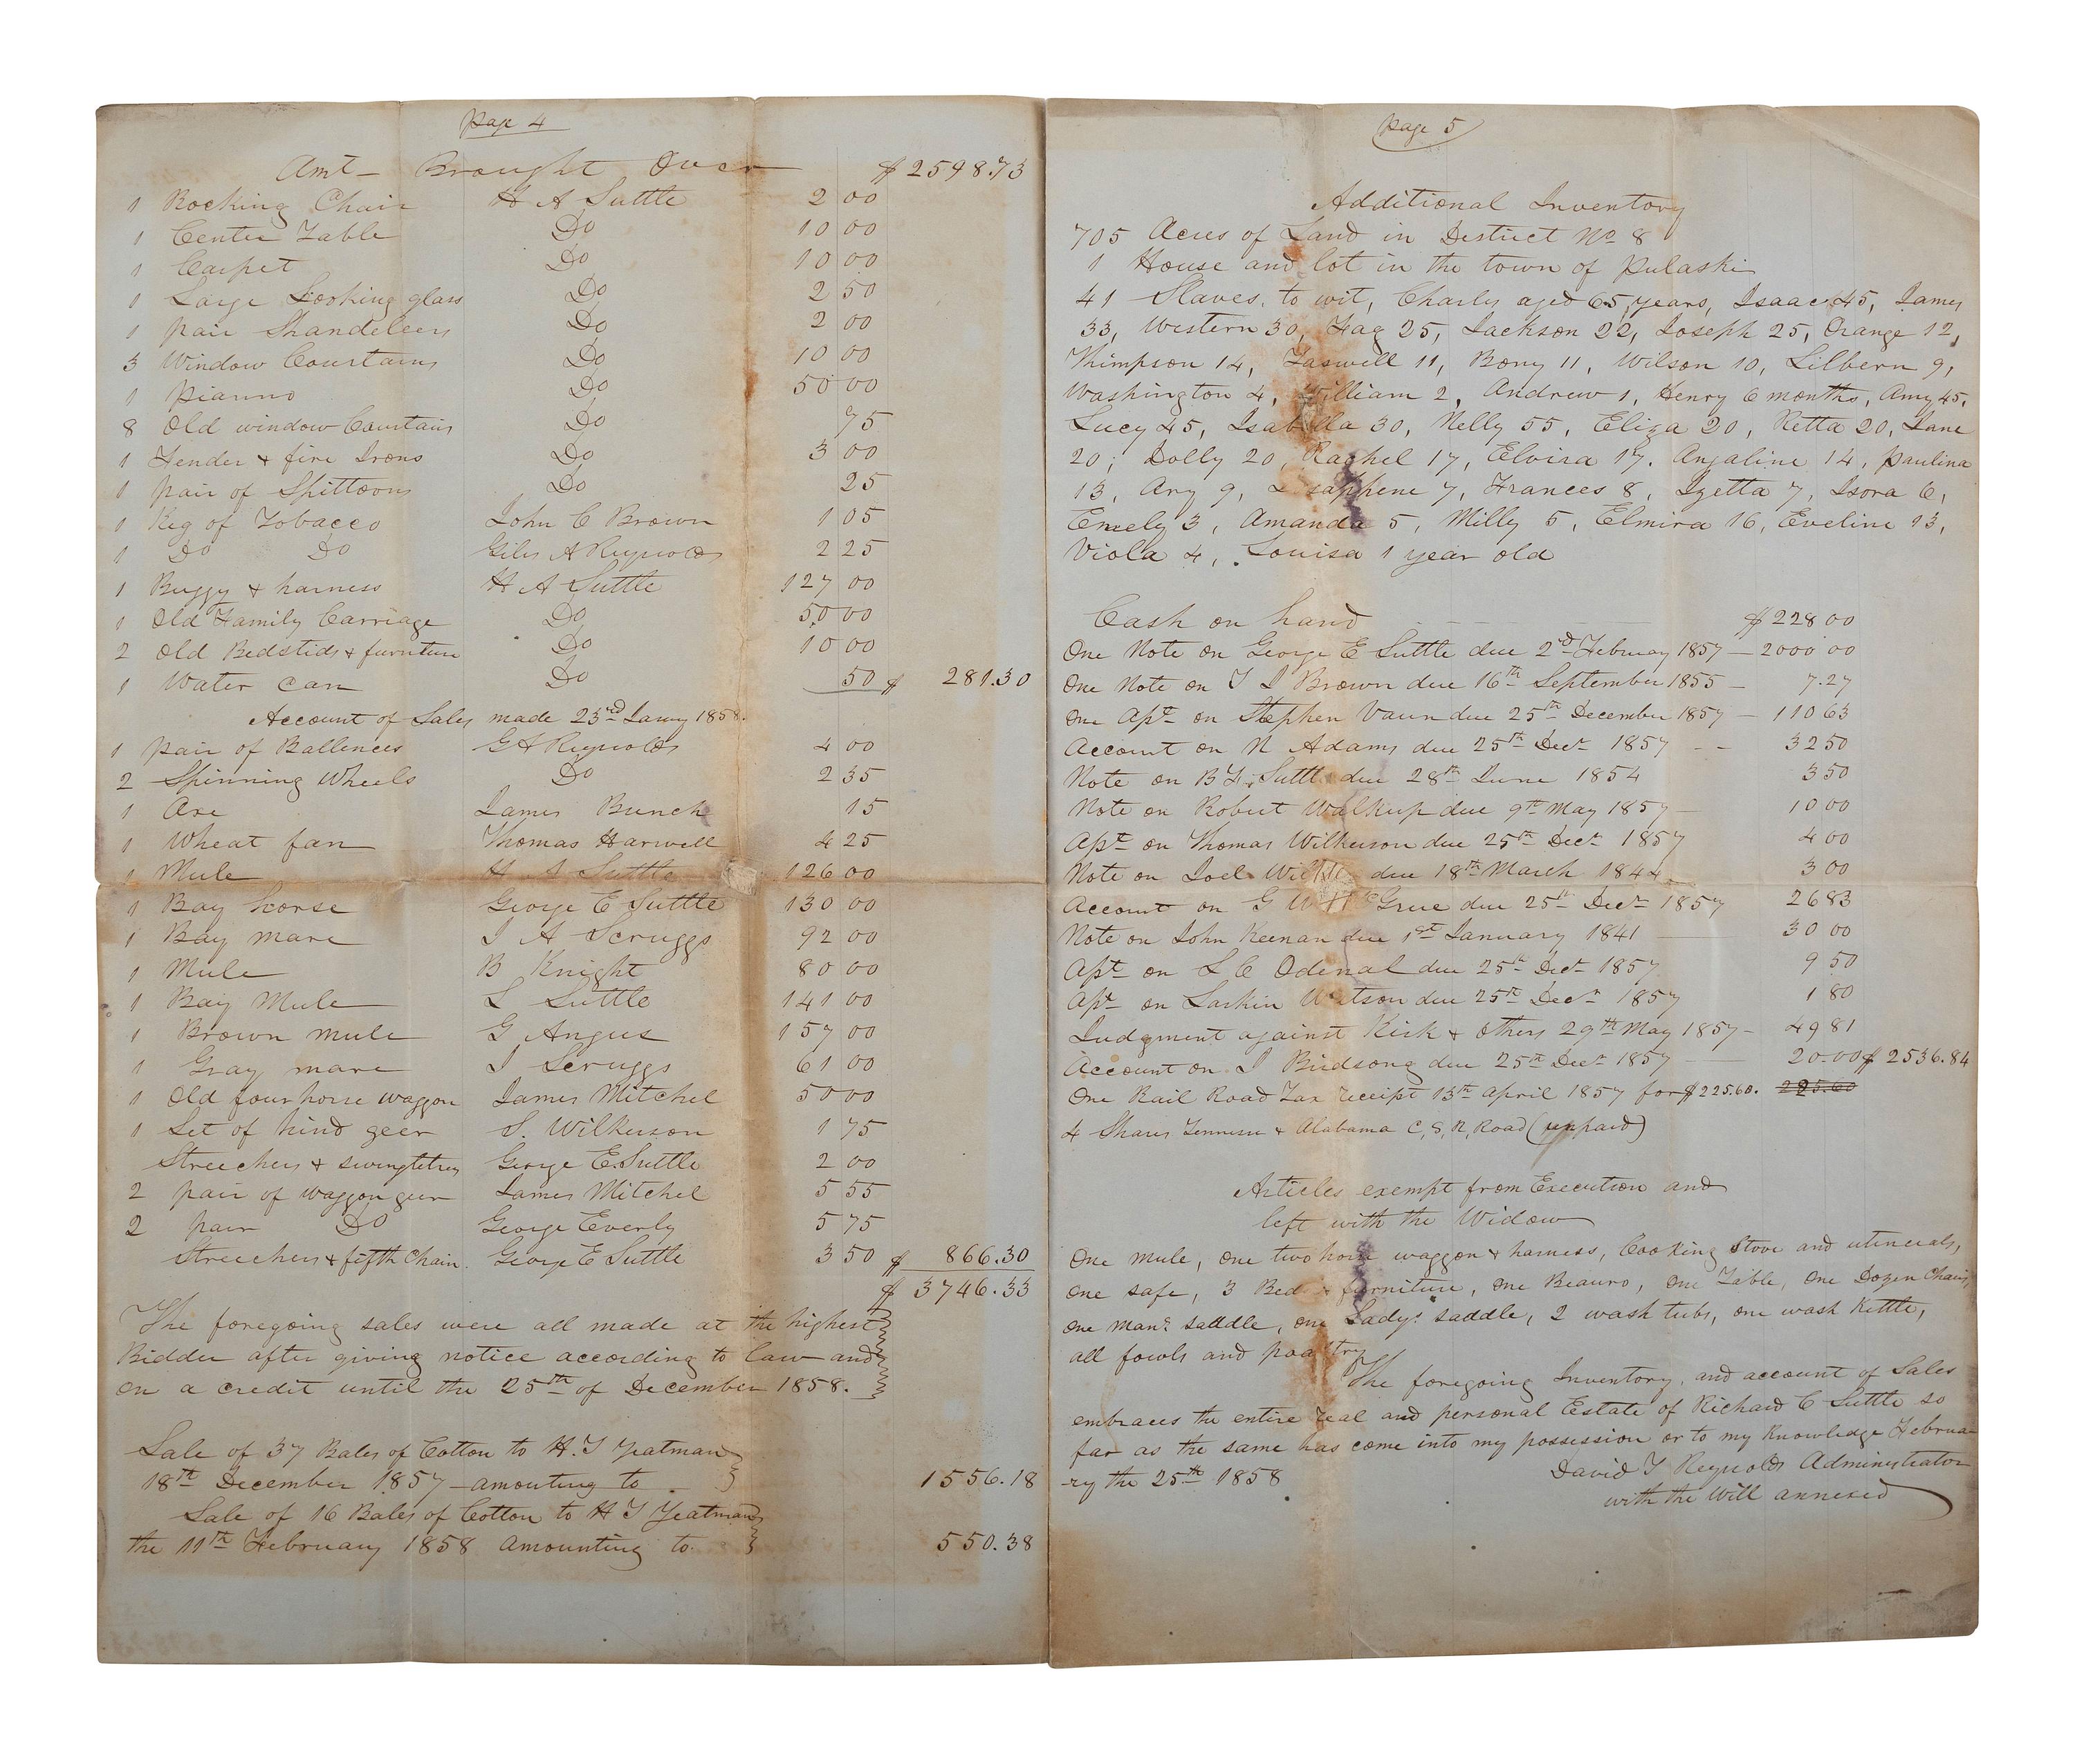 page 4
Amt Brought Over $2598.73
1 Rocking Chair H A Suttle 2 00
1 Center Table Do 10 00
1 Carpet Do 10 00
1 Large Looking glass Do 2 50
1 pair Shandeleers Do 2 00
3 Window Courtains Do 10 00
1 pianno Do 50 00
8 Old window Courtains Do 75
1 Fender & fire Irons Do 3 00
1 pair of Spittoons Do 25
1 Keg of Tobacco John C Brown 1 05
1 Do Do Giles A Reynolds 2 25
1 Buggy & harness H A Suttle 127 00
1 Old Family Carriage Do 50 00
2 Old Bedstids & furniture Do 10 00
1 Water can Do 50 $ 281.30
Account of Sales made 23rd Jany 1858.
1 pair of Ballences G A Reynolds 4 00
2 Spinning Wheels Do 2 35
1 Axe James Bunch 15
1 Wheat fan Thomas Harwell 4 25
1 Mule H A Suttle 126 00
1 Bay horse George E Suttle 130 00
1 Bay mare J A Scruggs 92 00
1 Mule B Knight 80 00
1 Bay Mule L Suttle 141 00
1 Brown mule G Angus 157 00
1 Gray mare J Scruggs 61 00
1 Old four horse waggon James Mitchel 50 00
1 Set of hind geer S. Wilkerson 1 75
Streechers & swingletrees George E. Suttle 2 00
2 pair of waggon geer James Mitchel 5 55
2 pair Do George Everly 5 75
Streechers & fifth Chain. George E Suttle 3 50 $ 866.30
$ 3746.33
The foregoing sales were all made at the highest
Bidder after giving notice according to law and
on a credit until the 25th of December 1858.
Sale of 37 Bales of Cotton to H. T Yeatman
18th December 1857 amouting to 1556.18
Sale of 16 Bales of Cotton to H T Yeatman
the 11th February 1858 amounting to 550.38
page 5
Additional Inventory
705 Acres of Land in District No 8
1 House and lot in the town of Pulaski
41 Slaves, to wit, Charly aged 65 years, Isaac 45, James
33, Western 30, Fag 25, Jackson 22, Joseph 25, Orange 12,
Thimpson 14, Taswell 11, Bony 11, Wilson 10, Lilbern 9,
Washington 4, William 2, Andrew 1, Henry 6 months, Amy 45,
Lucy 45, Isabella 30, Nelly 55, Eliza 20, Retta 20, Jane
20, Dolly 20, Rachel 17, Elvira 17, Anjaline 14, Paulina
13, Ary 9, 7, Frances 8, Izetta 7, Isora 6,
Emely 3, Amanda 5, Milly 5, Elmira 16, Eveline 13,
Viola 4, Louisa 1 year old
Cash on hand $228 00
One Note on George E Suttle due 2nd February 1857 2000 00
One Note on T J Brown due 16th September 1855 7.27
One Apt on Stephen Vaun due 25th December 1857 110 63
Account on N Adams due 25th Decr 1857 32 50
Note on B F Suttle due 28th June 1854 3 50
Note on Robert Walkup due 9th May 1857 10 00
Apt on Thomas Wilkerson due 25th Decr 1857 4 00
Note on Joel due 18th March 1844 3 00
Account on G W due 25th Decr 1857 26 83
Note on John Keenan due 1st January 1841 30 00
Apt on L C Odenal due 25th Decr 1857 9 50
Apt on Larkin Watson due 25th Decr 1857 1 80
Judgment against Kirk & others 29th May 1857 49 81
Account on J Birdsong due 25th Decr 1857 20.00 $ 2536.84
One Rail Road Tax receipt 13th April 1857 for $225.60. 225.60
4 Shares Tennessee & Alabama C, S, R, Road (unpaid)
Articles exempt from Execution and
left with the Widow
One mule, one two horse waggon & harness, Cooking Stove and utincials,
one safe, 3 Beds & furniture, one Beauro, one Table, one Dozen Chairs,
one mans saddle, one Ladys saddle, 2 wash tubs, one wash Kettle,
all fowls and poaltry
The foregoing Inventory and account of Sales
embraces the entire real and personal Estate of Richard C Suttle so
far as the same has come into my possession or to my Knowledge Februa-
ry the 25th 1858
David T Reynolds Administrator
with the Will annexed